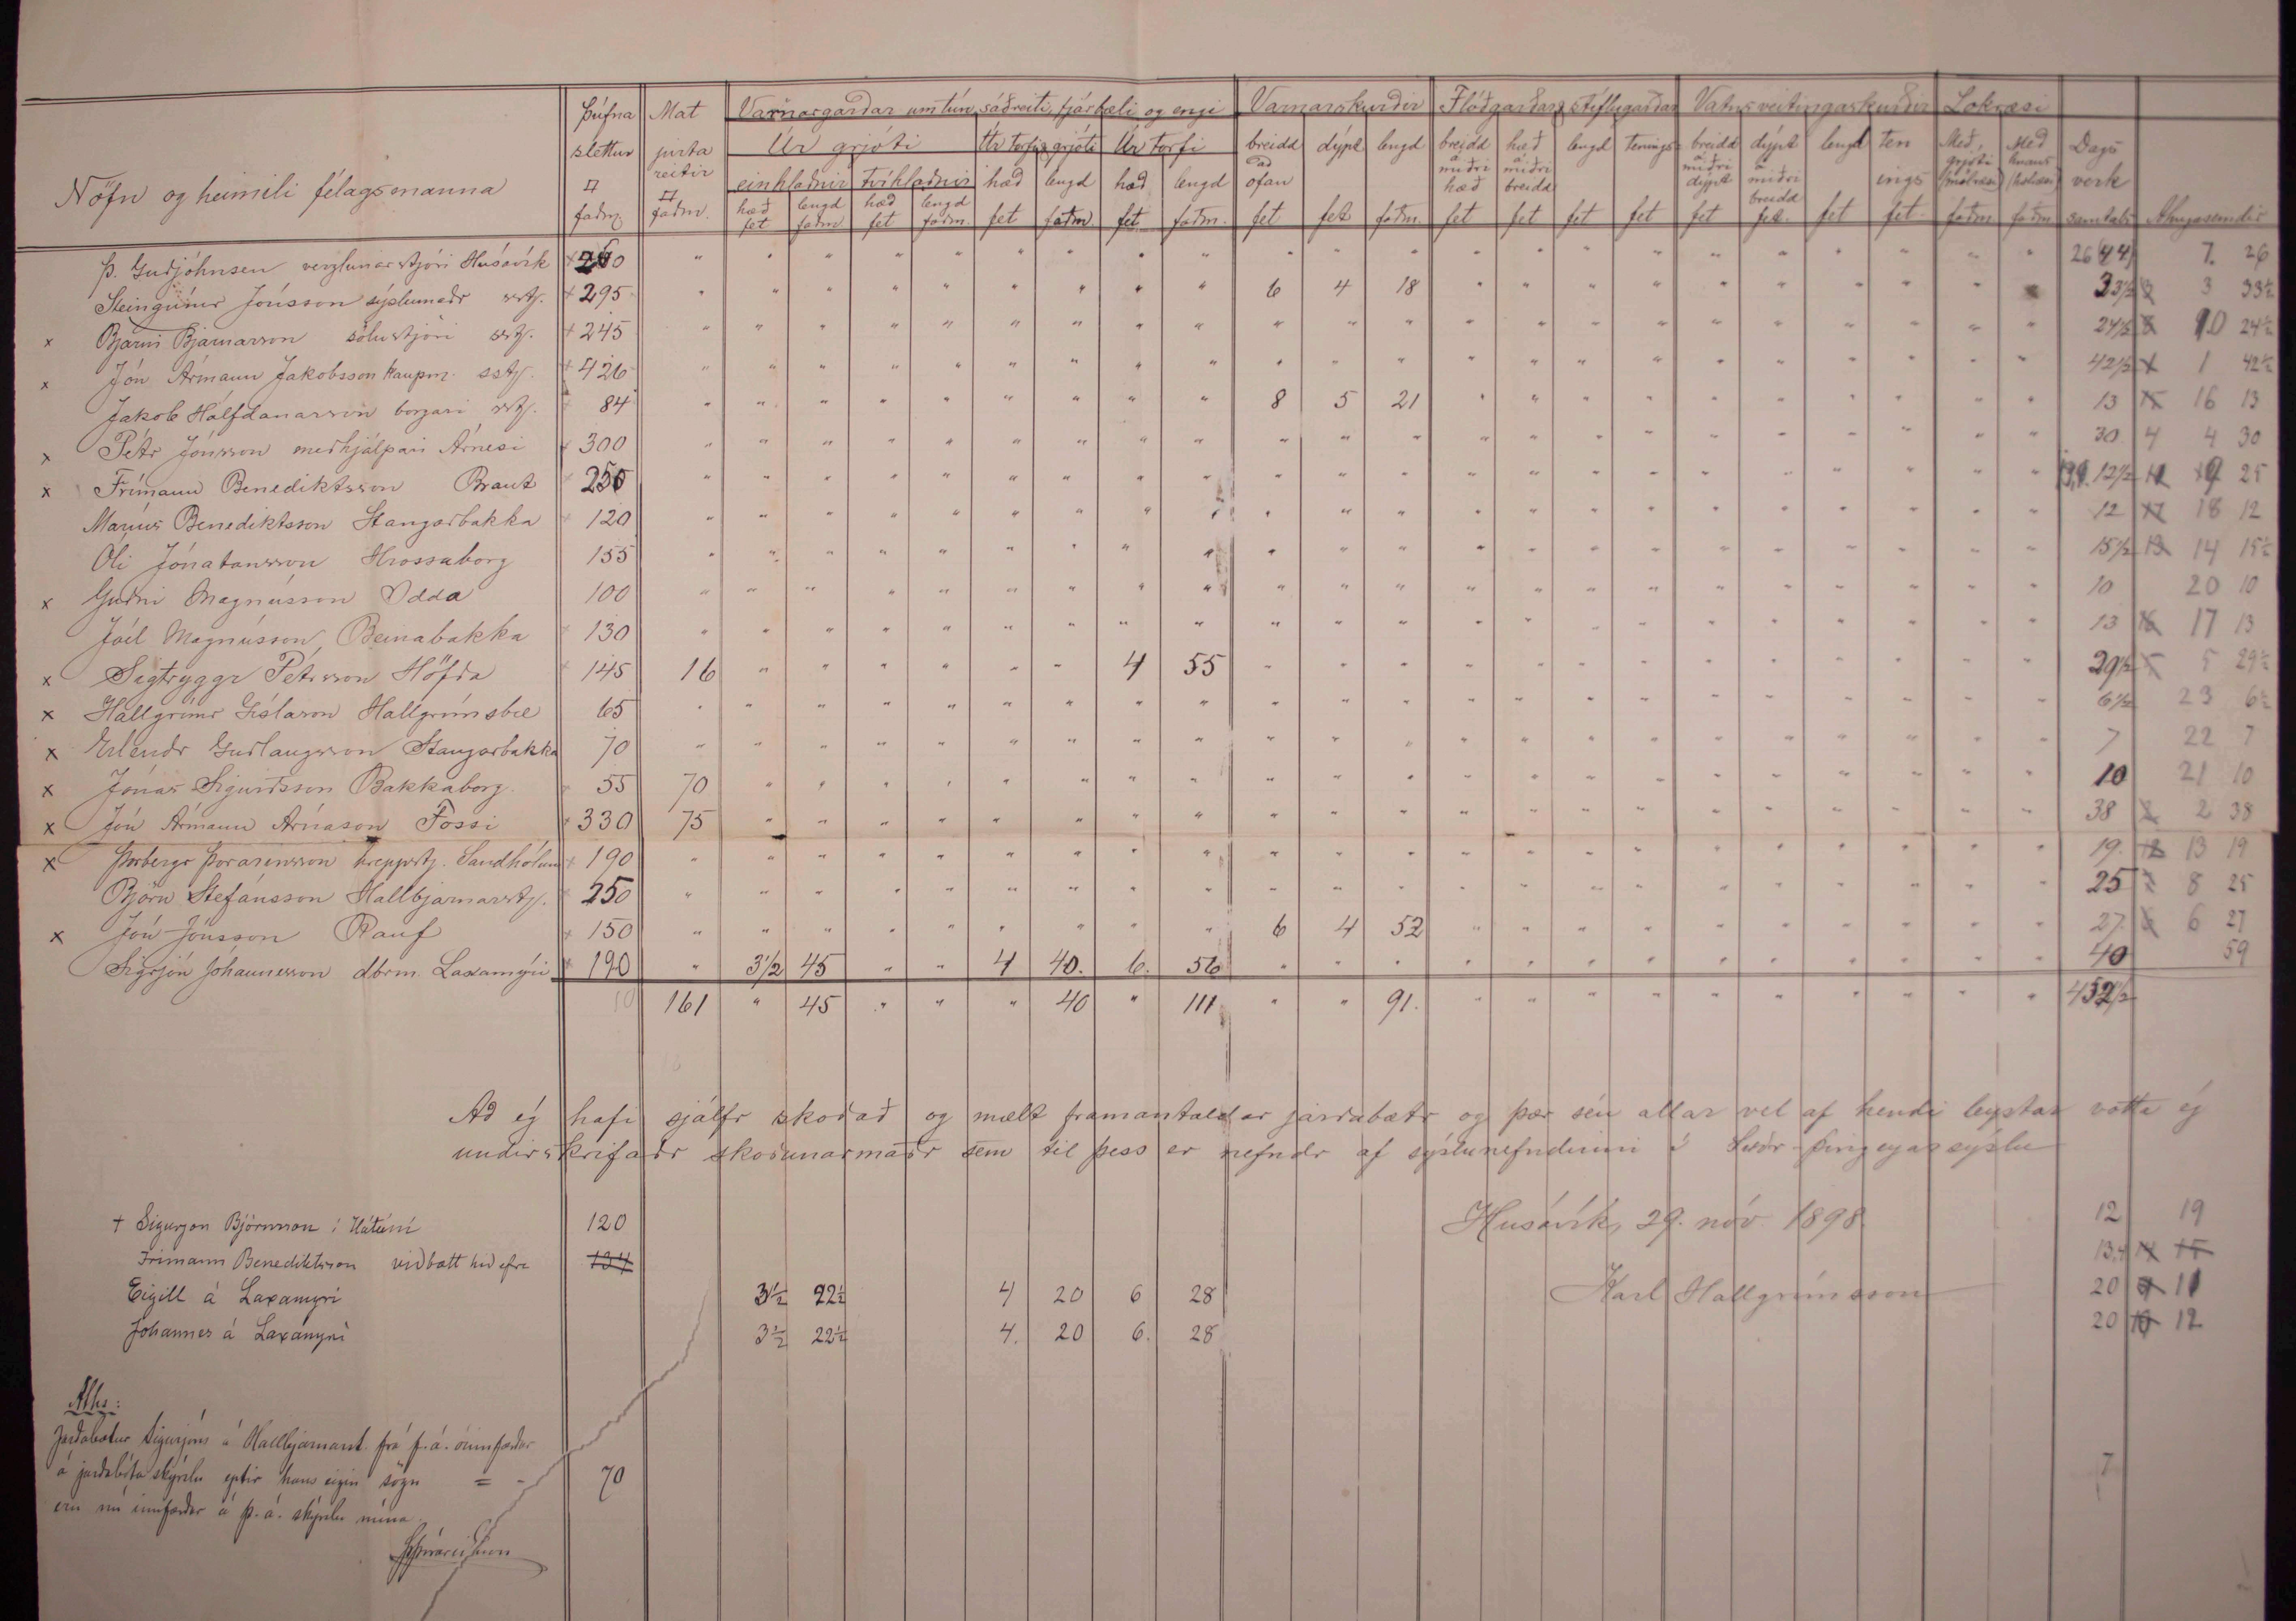 Þúfna Mat Varnargarðar um tún, sáðreiti, fjárbæli og engi Varnarskurðir Flóðgarðar & stíflugarðar Vatnsveitingaskurðir Lokræsi
sléttur jurta Úr grjóti Úr torfi & grjóti Úr torfi breidd dýpt lengd breidd hæð lengd tenings breidd dýpt lengd ten Með Með Dags
reitir einhlaðnir tvíhlaðnir hæð lengd hæð lengd að ofan á miðri hæð á miðri breidd á miðri dýpt á miðri breidd ings grjóti verk
Nöfn og heimili félagsmanna □ faðm. □ faðm. hæð fet lengd faðm. hæð fet lengd faðm. fet faðm. fet faðm. fet fet faðm. fet fet fet fet fet fet fet fet faðm. faðm samtals Athugasemdir
Þ. Guðjóhnsen verzlunarstjóri Húsavík 260 " " " " " " " " " " " " " " " " " " " " " " 26 (44) 7. 26
Steingrímr Jónsson sýslumaðr sstj. 295 " " " " " " " " " 6 4 18 " " " " " " " " " " 33½ 3 33½
x Bjarni Bjarnarson sölustjóri sstj. 245 " " " " " " " " " " " " " " " " " " " " " " 24½ 8 10 24½
x Jón Ármann Jakobsson kaupm. sstj. 426 " " " " " " " " " " " " " " " " " " " " " " 42½ 1 1 42½
Jakob Hálfdanarson borgari sstj. 84 " " " " " " " " " 8 5 21 " " " " " " " " " " 13 15 16 13
x Pétr Jónsson meðhjálpari Árnesi 300 " " " " " " " " " " " " " " " " " " " " " " 30 4 4 30
x Frímann Benediktsson Braut 250 " " " " " " " " " " " " " " " " " " " " " " 12½ 9 25
Maríus Benediktsson Stangarbakka 120 " " " " " " " " " " " " " " " " " " " " " " 12 17 18 12
Óli Jónatansson Hrossaborg 155 " " " " " " " " " " " " " " " " " " " " " " 15½ 13 14 15½
x Guðni Magnússon Odda 100 " " " " " " " " " " " " " " " " " " " " " " 10 20 10
Jóel Magnússon, Beinabakka 130 " " " " " " " " " " " " " " " " " " " " " " 13 16 17 13
x Sigtryggr Pétrsson Höfða 145 16 " " " " " " 4 55 " " " " " " " " " " " " " 29½ 5 5 29½
x Hallgrímr Gíslason Hallgrímsbæ 65 " " " " " " " " " " " " " " " " " " " " " " 6½ 23 6½
x Erlendr Guðlaugsson Stangarbakka 70 " " " " " " " " " " " " " " " " " " " " " " 7 22 7
x Jónas Sigurðsson Bakkaborg 55 70 " " " " " " " " " " " " " " " " " " " " " 10 21 10
x Jón Ármann Árnason Fossi 330 75 " " " " " " " " " " " " " " " " " " " " " 38 2 2 38
x Þorbergr Þórarinsson hreppstj. Sandhólum 190 " " " " " " " " " " " " " " " " " " " " " " 19. 12 13 19
Björn Stefánsson Hallbjarnarstj. 250 " " " " " " " " " " " " " " " " " " " " " " 25 7 8 25
x Jón Jónsson Rauf 150 " " " " " " " " " 6 4 52 " " " " " " " " " " 27. 6 6 27
Sigrjón Jóhannesson dbrm. Laxamýri 190 " 3½ 45 " " 4 40. 6. 56 " " " " " " " " " " " " " 40 59
161 " 45 " " " 40 " 111 " " 91. " " " " " " " " " " 452½
Að ég hafi sjálfr skoðað og mælt framantaldar jarðabætr og þær séu allar vel af hendi leystar votta ég
undirskrifaðr skoðunarmaðr sem til þess er nefndr af sýslunefndinni í Suðr-Þingeyarsýslu
Húsavík, 29. nóv. 1898.
Karl Hallgrímsson
+ Sigurjon Björnsson í Hátúni 120 12 19
Frimann Benediktsson viðbætt hið efra 134 13.4 14 15
Eigill á Laxamyri 3½ 22½ 4 20 6 28 20 9 11
Johannes á Laxamyri 3½ 22½ 4. 20 6. 28 20 10 12
Aths:
Jarðabætur Sigurjóns á Hallbjarnarst. frá f. á. óinnfærðar
á jarðabóta skýrslu eptir hans eigin sögn = - 70 7
eru nú innfærðar á þ. á. skýrslu mína.